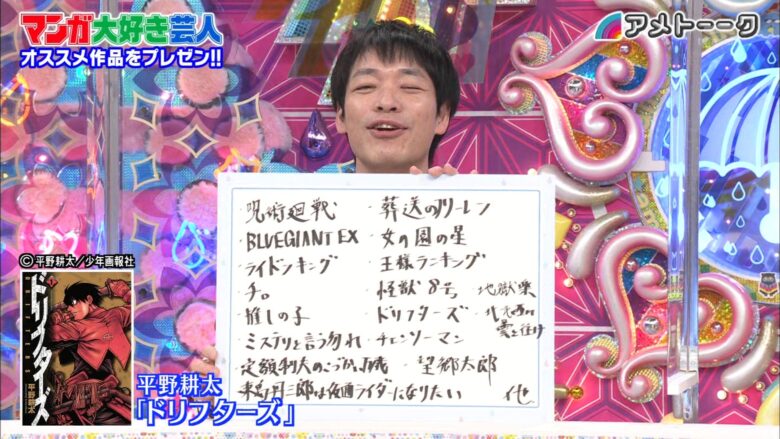 マンガ大好き芸人
オススメ作品をプレゼン!!
アメトーーク
・呪術廻戦 ・葬送のフリーレン
・BLUEGIANT EX ・女の園の星
・ライドンキング ・王様ランキング
・チ。 ・怪獣8号 ・地獄楽
・推しの子 ・ドリフターズ
・ミステリと言う勿れ ・チェンソーマン
・望郷太郎
・東島丹三郎は仮面ライダーになりたい 他
©平野耕太／少年画報社
ドリフターズ
平野耕太
平野耕太
「ドリフターズ」